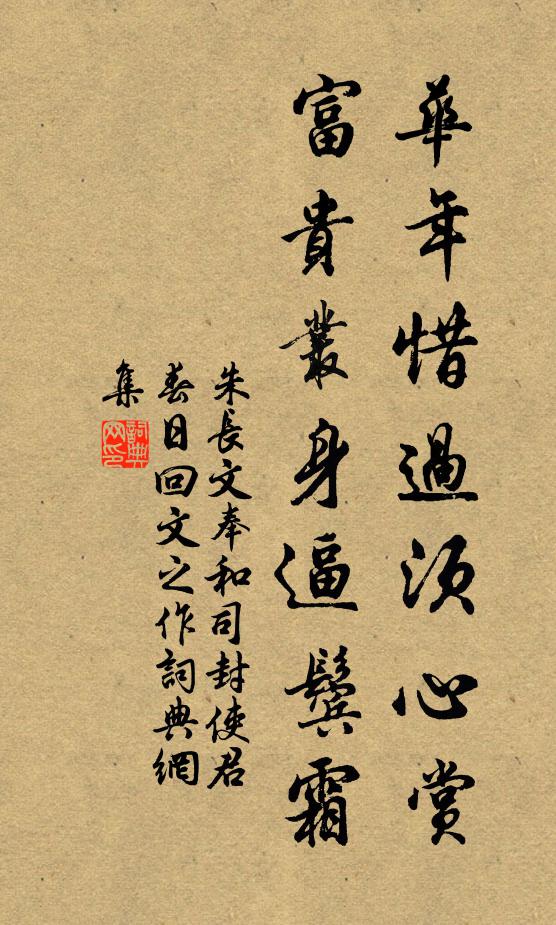 華年惜過須心賞
富貴叢身逼鬢霜
朱長文奉和司封使君
春日回文之作詞典網
集
詞典
网印